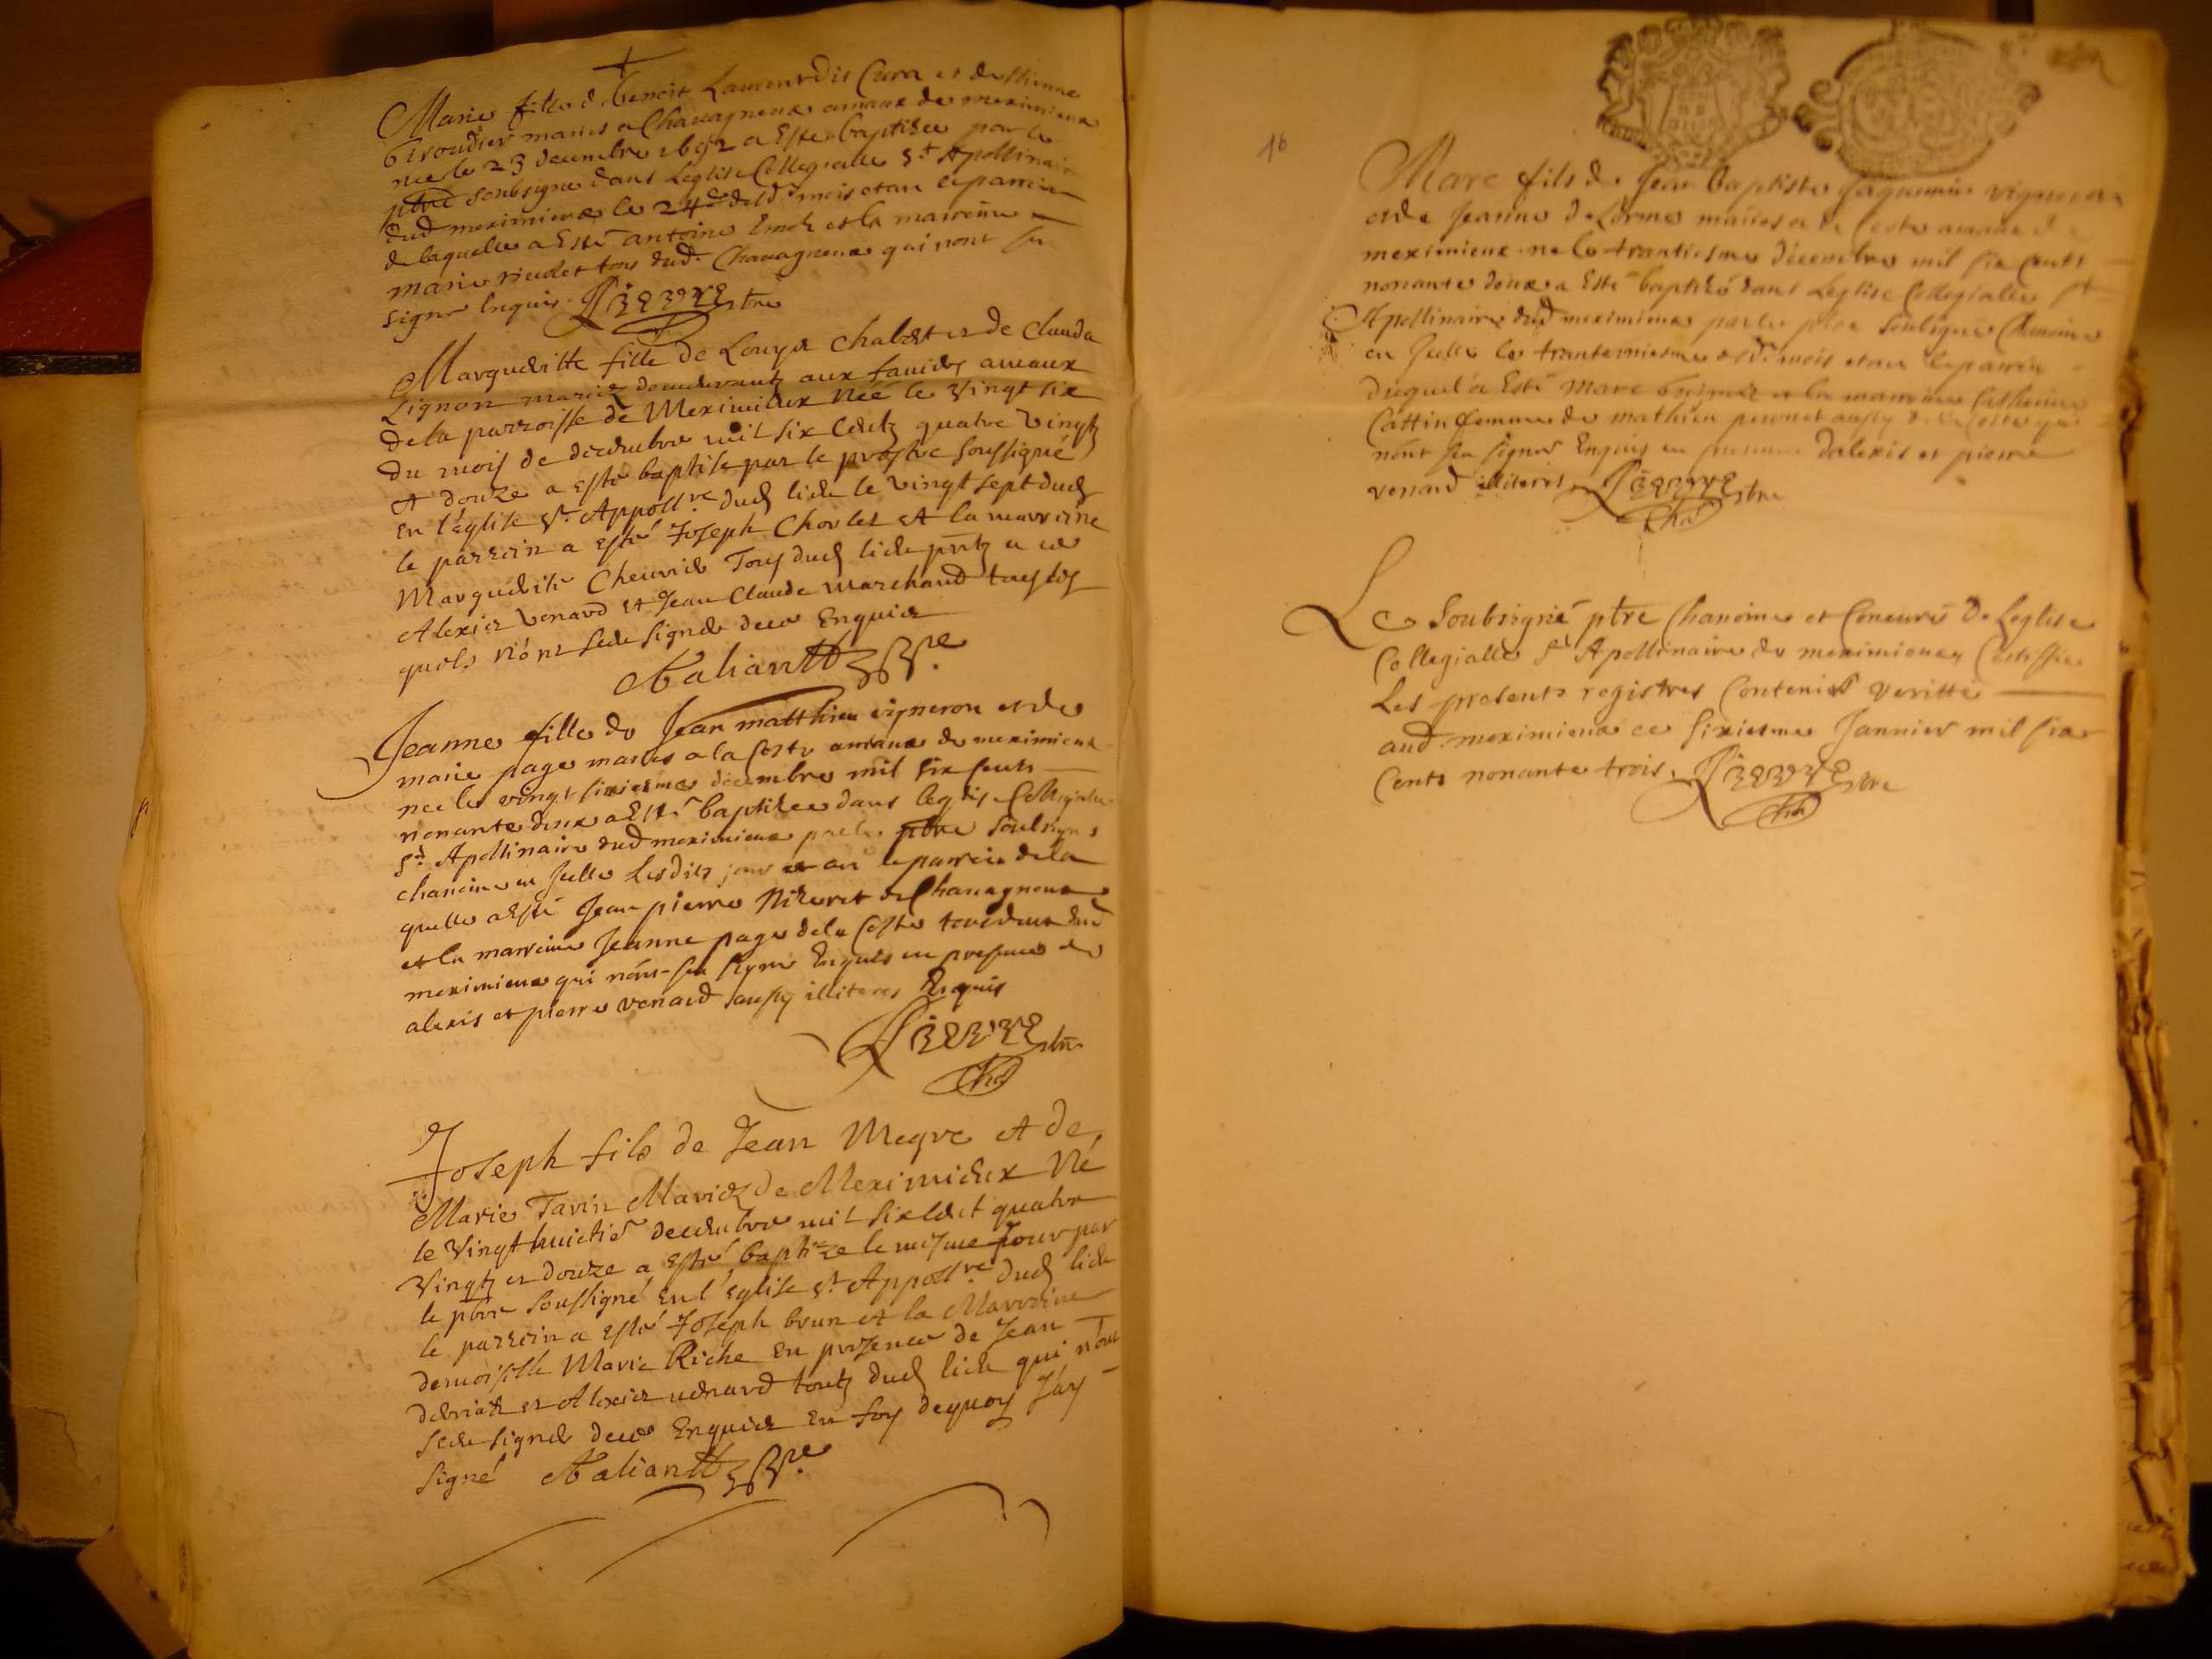 Marie fille d benoit Laurent dit Cura et de
Giroudier maries a Chavagneux amaux de meximieux
nee le 23 decembre 1692 a Este baptisee par le
ptre soubsigne dans Leglise Collegialle St Apollinaire
dud meximieux le 24e dud mois et an le parrin
de laquelle a Esté antoine et la marrine
marie tous dud. Chavagneux qui nont sceu
signer Enquis. Pierre ptre
Margueritte fille de Louys Chabot et de Clauda
Lignon mariez demeurantz aux ameaux
de la parroisse de Meximieux Née le vingt six
du mois de decembre mil six centz quatre vingtz
et douze a esté baptisé par le prestre soussigné
en l'église St. Appollre dud lieu le vingt sept dud
le parrein a esté Joseph Chorlet et la marreine
Marguerite Tous dud lieu pntz a ce
Alexis Venard et Jean Claude marchand tous les
quels n'ont sceu signer de ce Enquis
Jeanne fille de Jean matthieu vigneron et de
marie page maries a la Coste amaux de meximieux
nee le vingt sixiesme decembre mil six cents
nonante deux a Esté baptisee dans leglise Collegialle
St. Apollinaire dud meximieux par le ptre soubsigne
chanoine en Icelle Lesdits jour et an le parrein de la
quelle a Esté Jean pierre de Chavagneux
et la marreine Jeanne page de la Coste dud
meximieux qui nont sceu signer Enquis en presence de
alexis et pierre venard aussy illiteres Enquis
Pierre ptre
Chne
Joseph fils de Jean Megre et de
Marie Tavin Mariez de Meximieux Né
le vingt huictie decembre mil six cent quatre
vingtz et douze a esté baptize le mesme jour par
le ptre soussigné en l'église St. Appollre dud lieu
le parrein a esté Joseph brun et la Marreine
demoiselle Marie Riche en presence de Jean
et Alexis venard toutz dud lieu qui n'ont
sceu signer de ce Enquis en foy dequoy J'ay
signé
16
Marc fils de Jean baptiste Jaquemin vigneron
et de Jeanne deLorme maries a la Coste amaux de
meximieux ne le trantiesme decembre mil six cents
nonante deux a Esté baptisé dans Leglise Collegialle St
Apollinaire dud meximieux par le ptre soubsigné Chanoine
en Icelle le dud mois et an le parrin
duquel a Esté Marc et la marrine Catherine
Cattin femme de mathieu pernet aussy de la Coste qui
nont sceu signer Enquis en presence dalexis et pierre
venard illiteres. Pierre ptre
Chne
Le Soubsigné ptre Chanoine et Concuré de Leglise
Collegialle St Apollinaire de meximieux Certiffie
Les presents registres Contenir veritté
aud. meximieux ce sixiesme Janvier mil six
Cents nonante trois. Pierre ptre
Chne